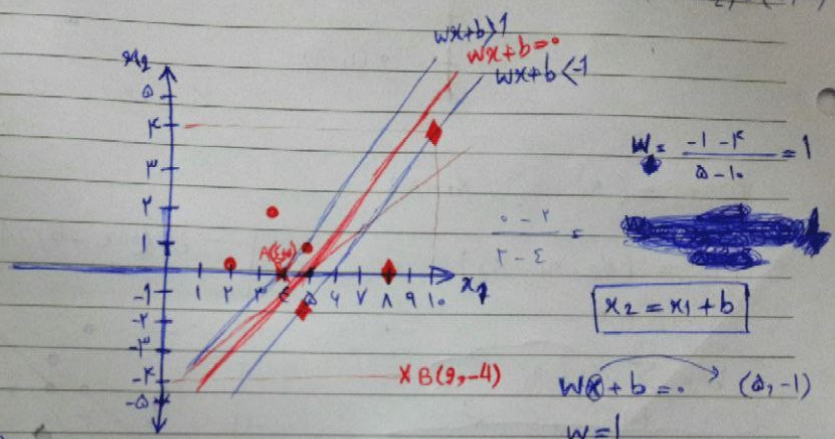 wx+b>1
wx+b=۰
wx+b<-1
x2
۵
۴
۳
۲
۱
-۱
-۲
-۳
-۴
-۵
۱ ۲ ۳ ٤ ۵ ۶ ۷ ۸ ۹ ۱۰
x1
B(9,-4)
W = (-1 -۴) / (۵-۱۰) = 1
(۰ - ۲) / (۲ - ٤) =
x2 = x1 + b
Wx + b = ۰ (۵, -1)
W = 1